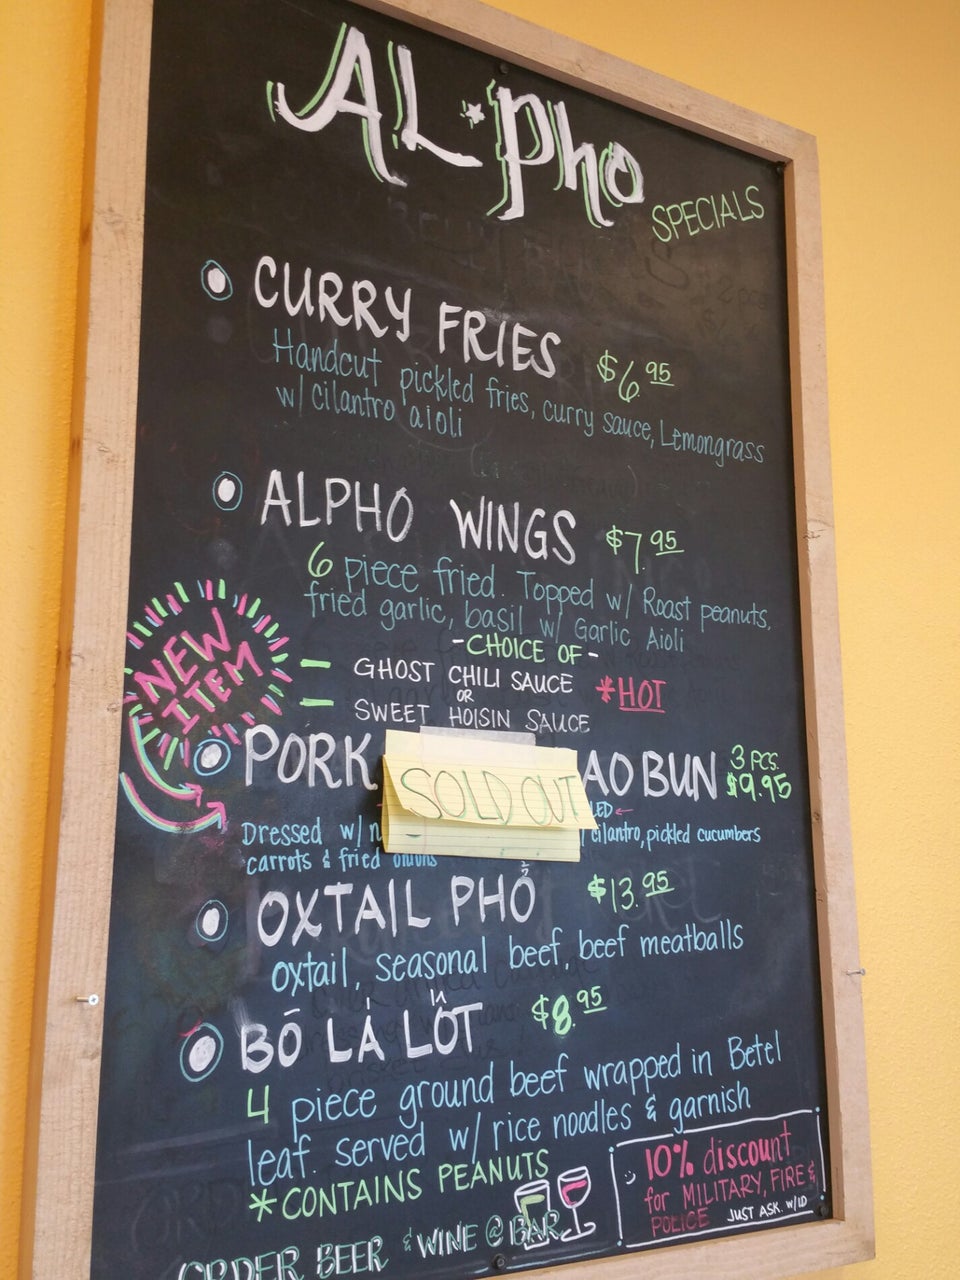 AL·Pho
SPECIALS
CURRY FRIES $6.95
Handcut pickled fries, curry sauce, Lemongrass
w/ cilantro aioli
ALPHO WINGS $7.95
6 piece fried. Topped w/ Roast peanuts,
fried garlic, basil w/ Garlic Aioli
-CHOICE OF-
GHOST CHILI SAUCE *HOT
OR
SWEET HOISIN SAUCE
NEW
ITEM
PORK AO BUN 3 PCS. $9.95
SOLD OUT
LED
Dressed w/ cilantro, pickled cucumbers
carrots & fried onions
OXTAIL PHỞ $13.95
oxtail, seasonal beef, beef meatballs
BŌ LÁ LỐT $8.95
4 piece ground beef wrapped in Betel
leaf. served w/ rice noodles & garnish
*CONTAINS PEANUTS
ORDER BEER & WINE @ BAR
10% discount
for MILITARY, FIRE &
POLICE JUST ASK. W/ID